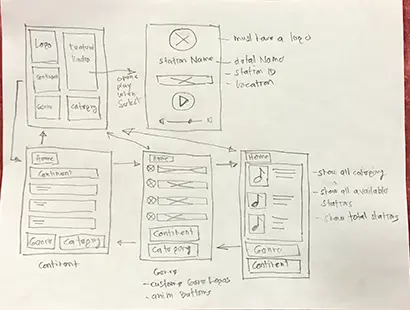 Logo
Featured
Radio
Continent
Genre
Category
open
play
when
select
Station Name
- must have a logo
- detail Name
- station ID
- location
Home
Continent
Genre
Category
Continent
Home
Continent
Category
Genre
- custom Genre Logos
- anim buttons
Home
Genre
Continent
- show all category
- show all available
stations
- show total stations